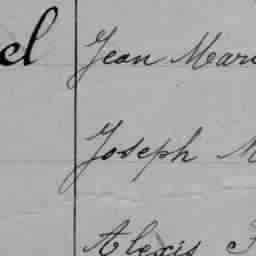 el Jean Mari
Joseph M
Alexis